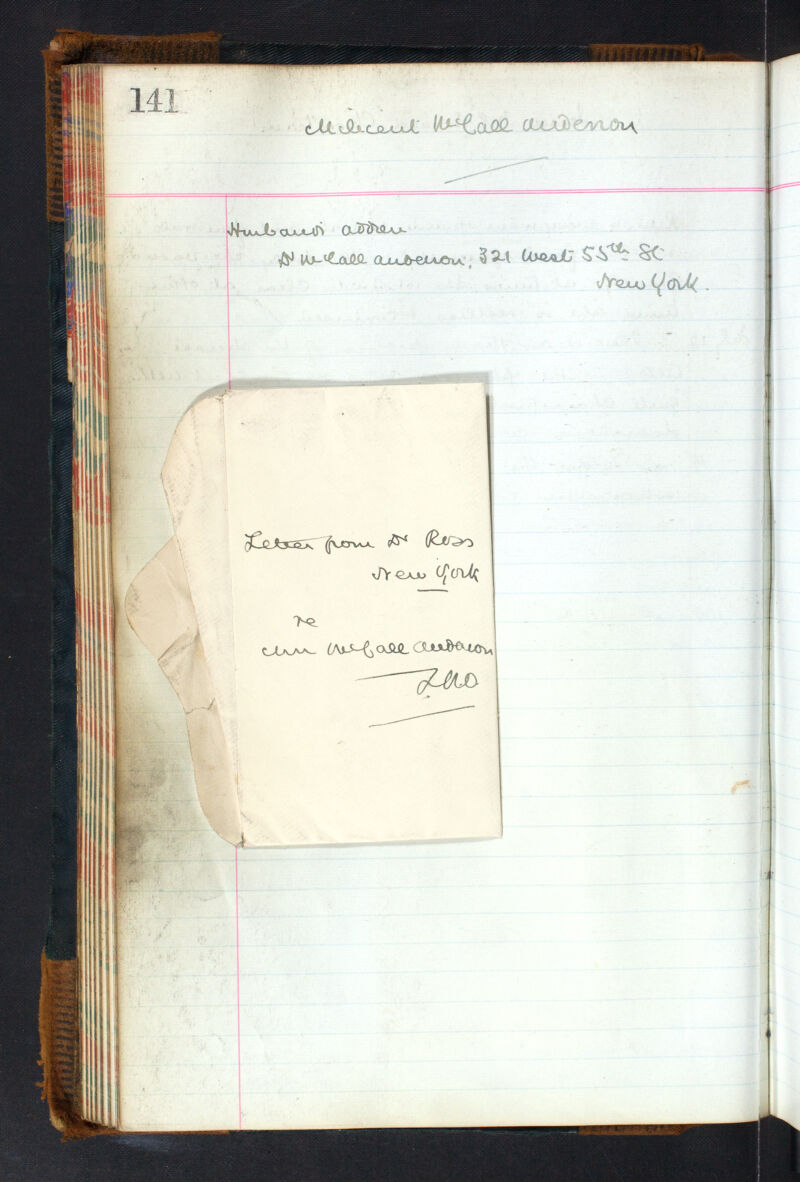 141
Milicent McCall Anderson
Husband's address
Dr McCall Anderson, 321 West 55th St
New York.
Letter from Dr Ross
New York
re
Mrs McCall Anderson